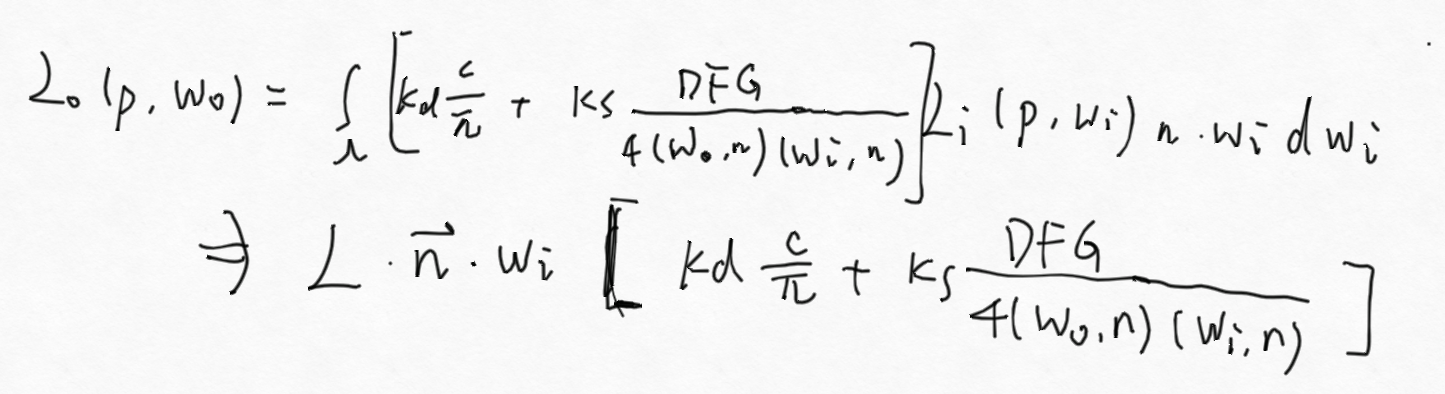 L₀(p, w₀) = ∫_Ω [kd c/π + ks DFG/4(w₀,n)(wi,n)] Li(p, wi) n·wi dwi
⇒ L · n⃗ · wi [kd c/π + ks DFG/4(w₀,n)(wi,n)]